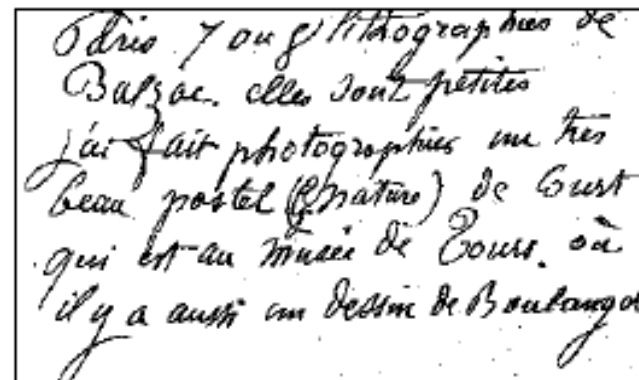 Paris 7 ou 8 lithographies de
Balzac. elles sont petites
j'ai fait photographier un très
beau pastel (g. nature) de Court
qui est au musée de Tours. où
il y a aussi un dessin de Boulanger